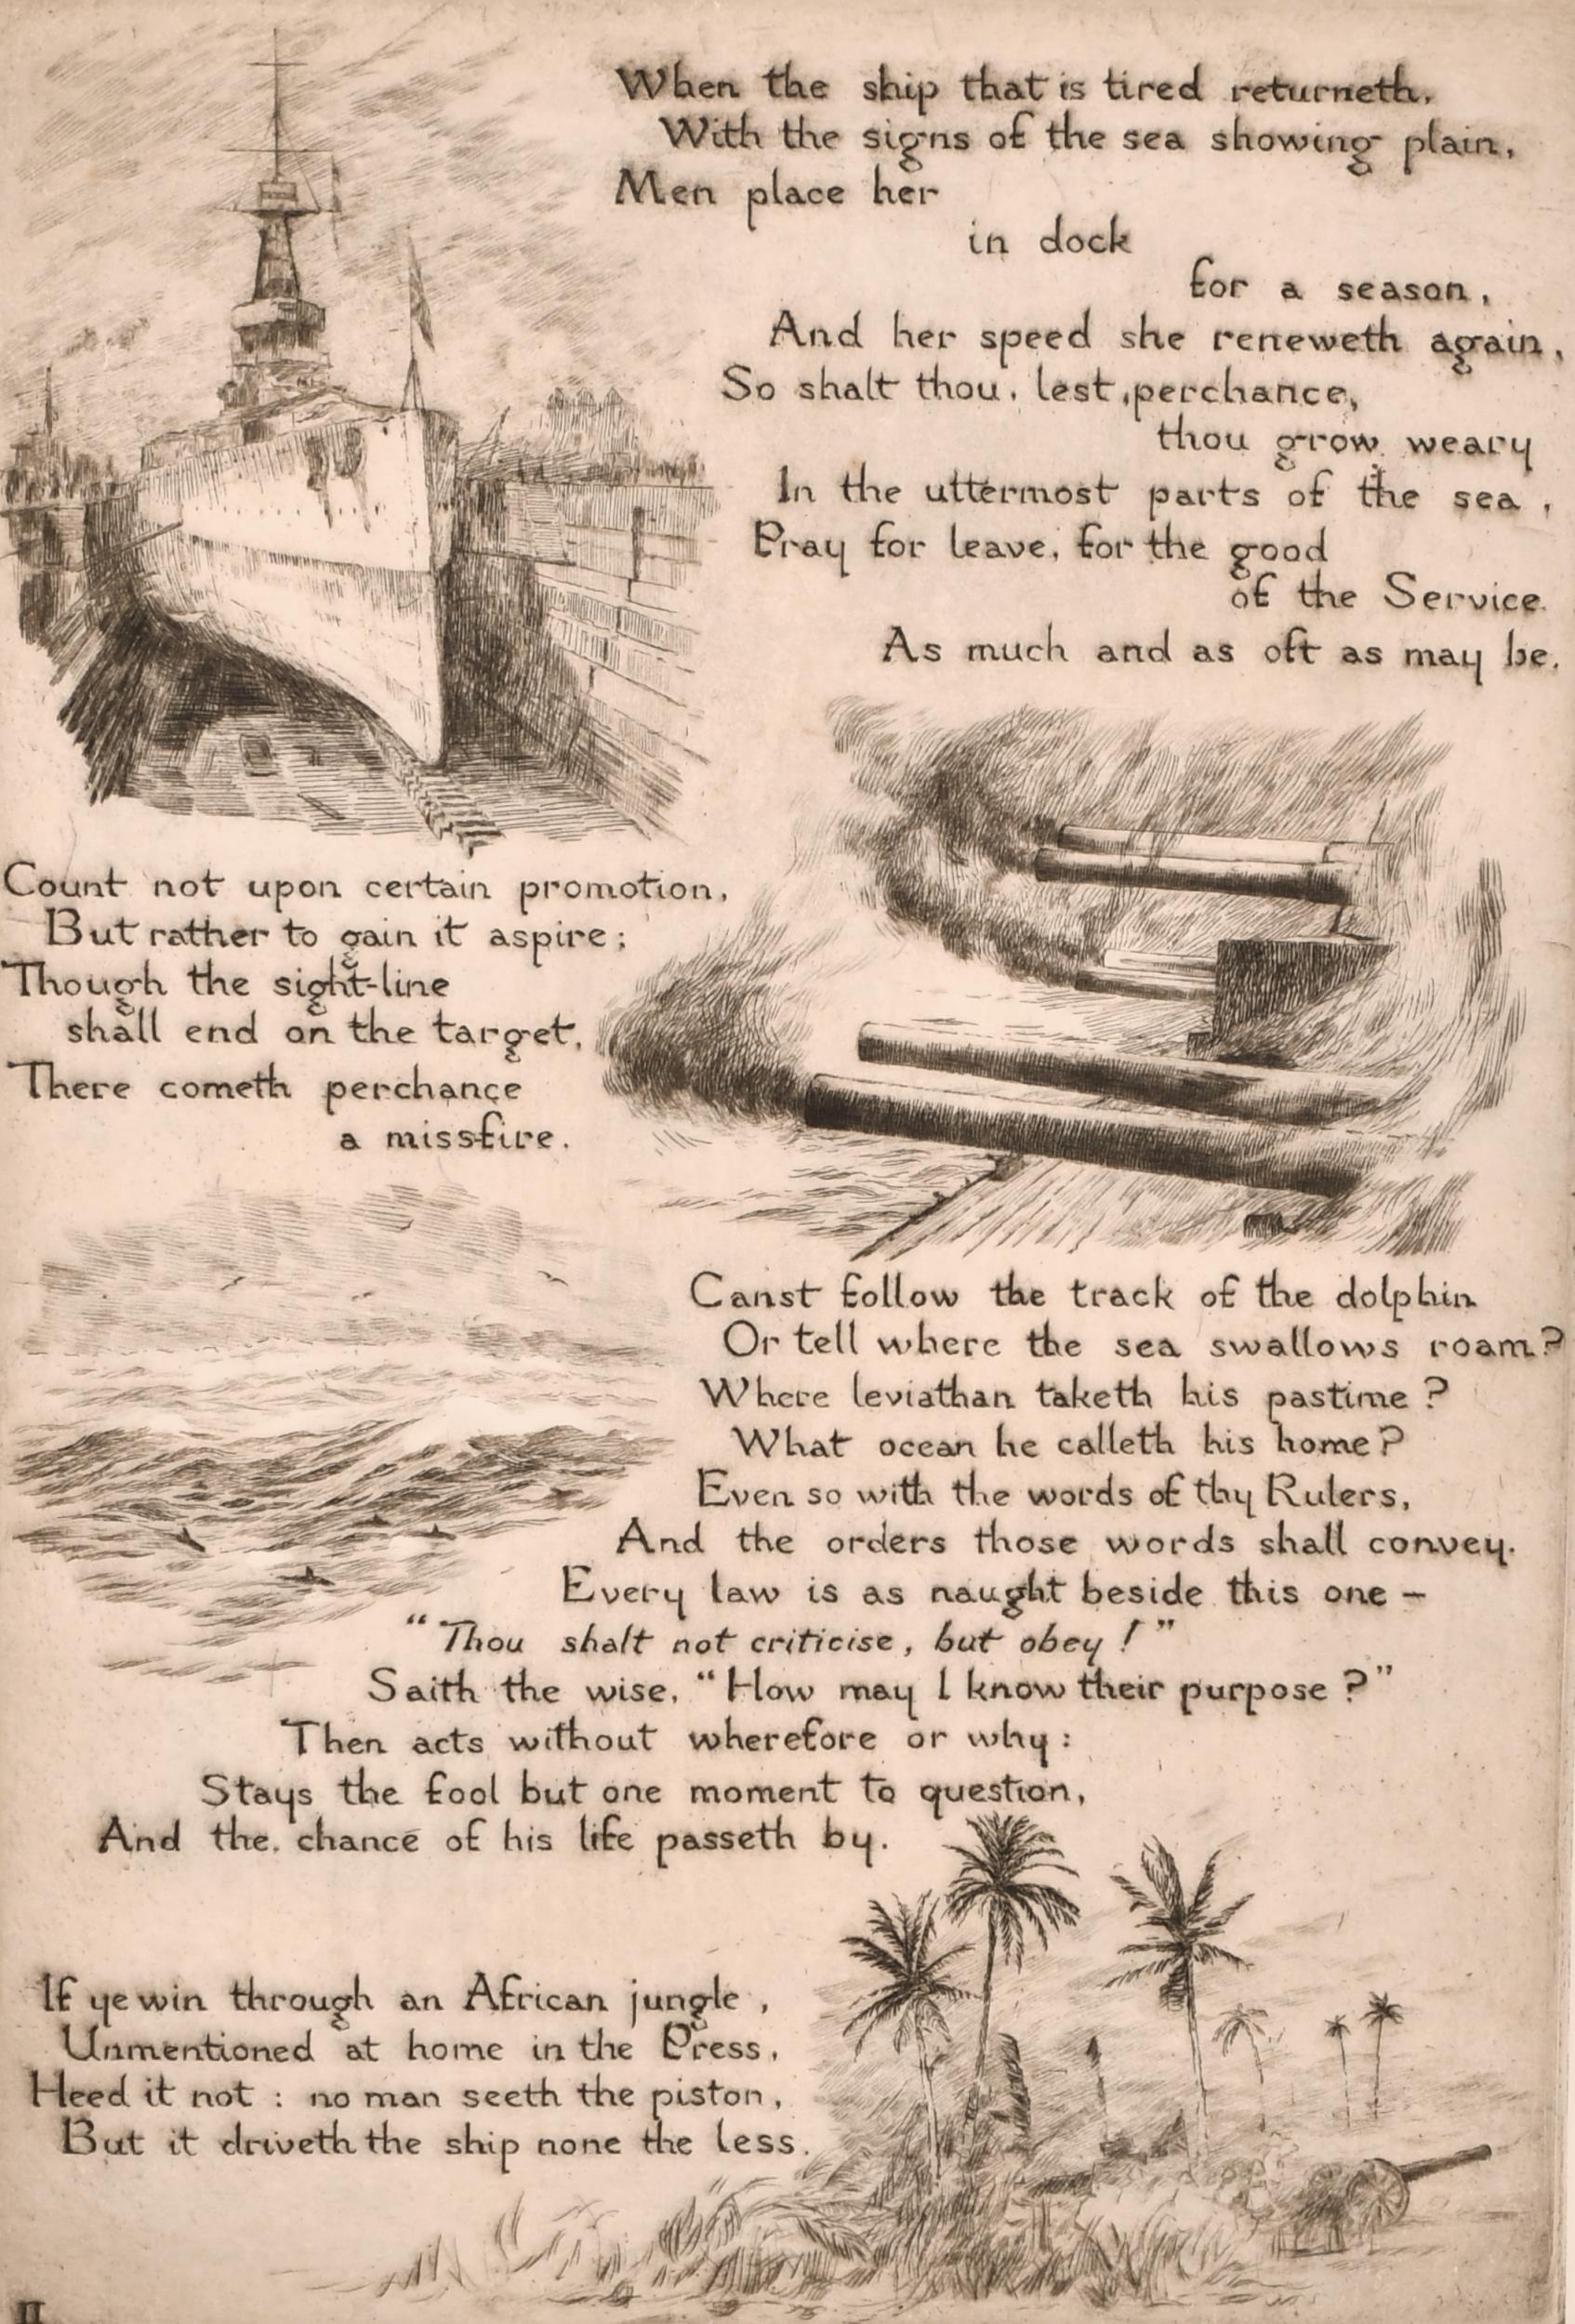 When the ship that is tired returneth,
With the signs of the sea showing plain,
Men place her
in dock
for a season,
And her speed she reneweth again,
So shalt thou, lest, perchance,
thou grow weary
In the uttermost parts of the sea,
Pray for leave, for the good
of the Service.
As much and as oft as may be.
Count not upon certain promotion,
But rather to gain it aspire;
Though the sight-line
shall end on the target,
There cometh perchance
a missfire.
Canst follow the track of the dolphin
Or tell where the sea swallows roam?
Where leviathan taketh his pastime?
What ocean he calleth his home?
Even so with the words of thy Rulers,
And the orders those words shall convey.
Every law is as naught beside this one –
"Thou shalt not criticise, but obey!"
Saith the wise, "How may I know their purpose?"
Then acts without wherefore or why:
Stays the fool but one moment to question,
And the chance of his life passeth by.
If ye win through an African jungle,
Unmentioned at home in the Press,
Heed it not: no man seeth the piston,
But it driveth the ship none the less.
II